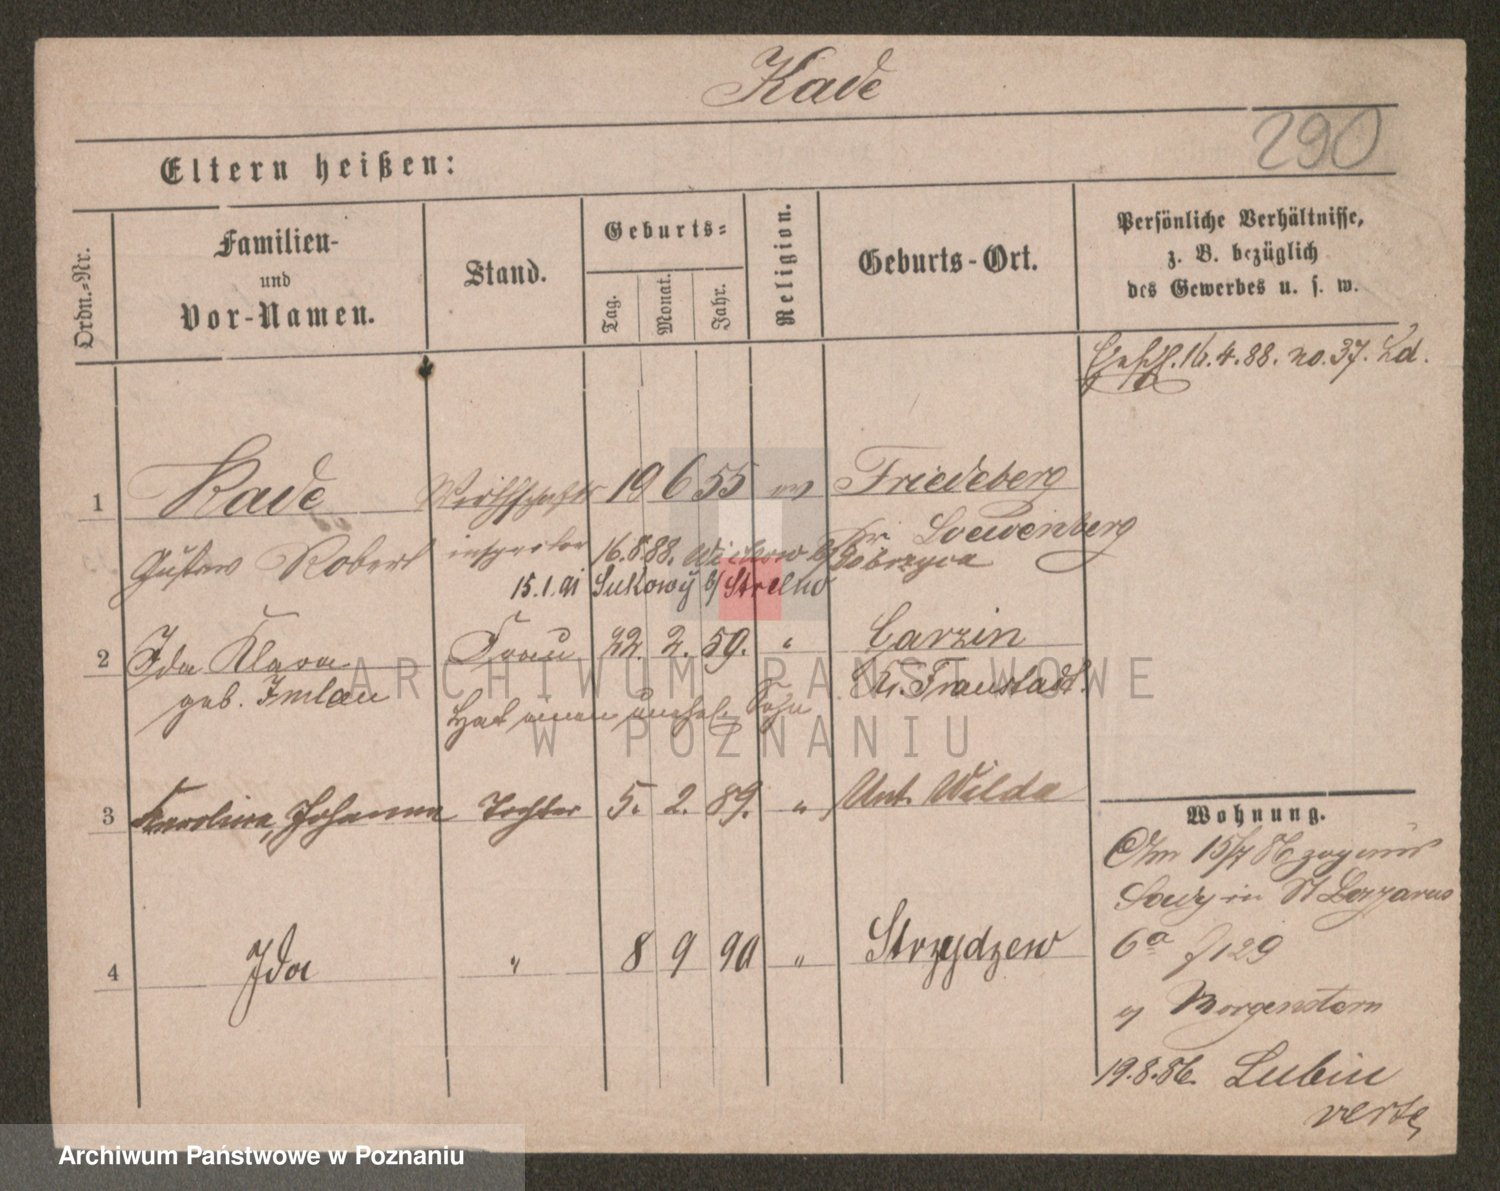 Kade
290
Eltern heißen:
Ordn.-Nr.
Familien-
und
Vor-Namen.
Stand.
Geburts-
Tag.
Monat.
Jahr.
Religion.
Geburts-Ort.
Persönliche Verhältnisse,
z. B. bezüglich
des Gewerbes u. s. w.
16.4.88. no. 37. Ld.
1 Kade Wirthschafts 19 6 55 ev Friedeberg
Gustav Robert inspector 16.8.88. Kr. Loewenberg
Dobrzyca
15.1.91 Sukowy b/ Strelno
2 Ida Klara Frau 22. 2. 59. " Carzin
geb. Imlau Kr. Fraustadt.
Hat einen unehel. Sohn
3 Karolina, Johanna Tochter 5. 2. 89. " Unt. Wilda
4 Ida " 8 9 90 " Strzydzew
Wohnung.
Am 15/7 86 zugezogen
in St Lazarus
6a f 129
b/ Morgenstern
19.8.86. Lubin
verte
ARCHIWUM PAŃSTWOWE
W POZNANIU
Archiwum Państwowe w Poznaniu